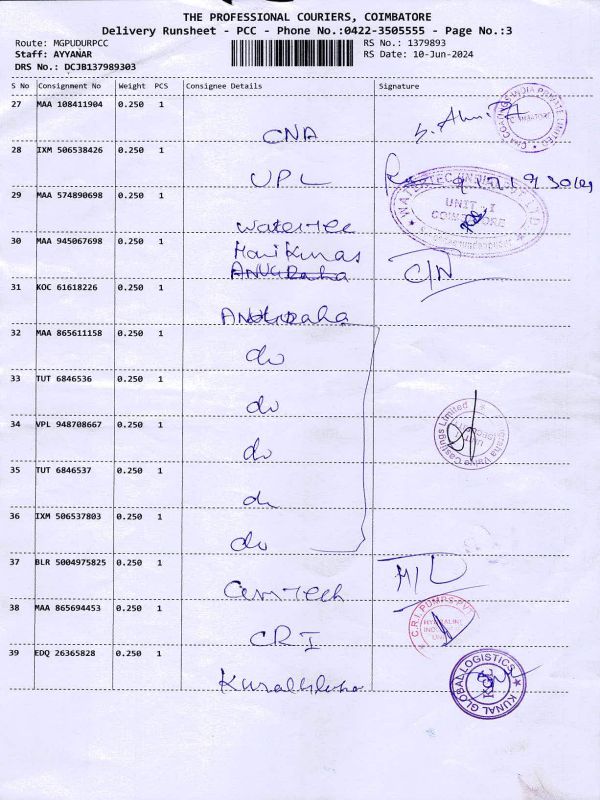 THE PROFESSIONAL COURIERS, COIMBATORE
Delivery Runsheet - PCC - Phone No.:0422-3505555 - Page No.:3
Route: MGPUDURPCC
RS No.: 1379893
Staff: AYYANAR
RS Date: 10-Jun-2024
DRS No.: DCJB137989303
S No Consignment No Weight PCS Consignee Details Signature
27 MAA 108411904 0.250 1
CNA
28 IXM 506538426 0.250 1
UPL
29 MAA 574890698 0.250 1
WATERTEC INDIA
UNIT - I
COIMBATORE
watertec
30 MAA 945067698 0.250 1
C/N
31 KOC 61618226 0.250 1
32 MAA 865611158 0.250 1
do
33 TUT 6846536 0.250 1
do
34 VPL 948708667 0.250 1
do
Valve Castings Limited
35 TUT 6846537 0.250 1
do
36 IXM 506537803 0.250 1
do
37 BLR 5004975825 0.250 1
38 MAA 865694453 0.250 1
C.R.I. PUMPS PVT
CRI
39 EDQ 26365828 0.250 1
KUNAL GLOBAL LOGISTICS